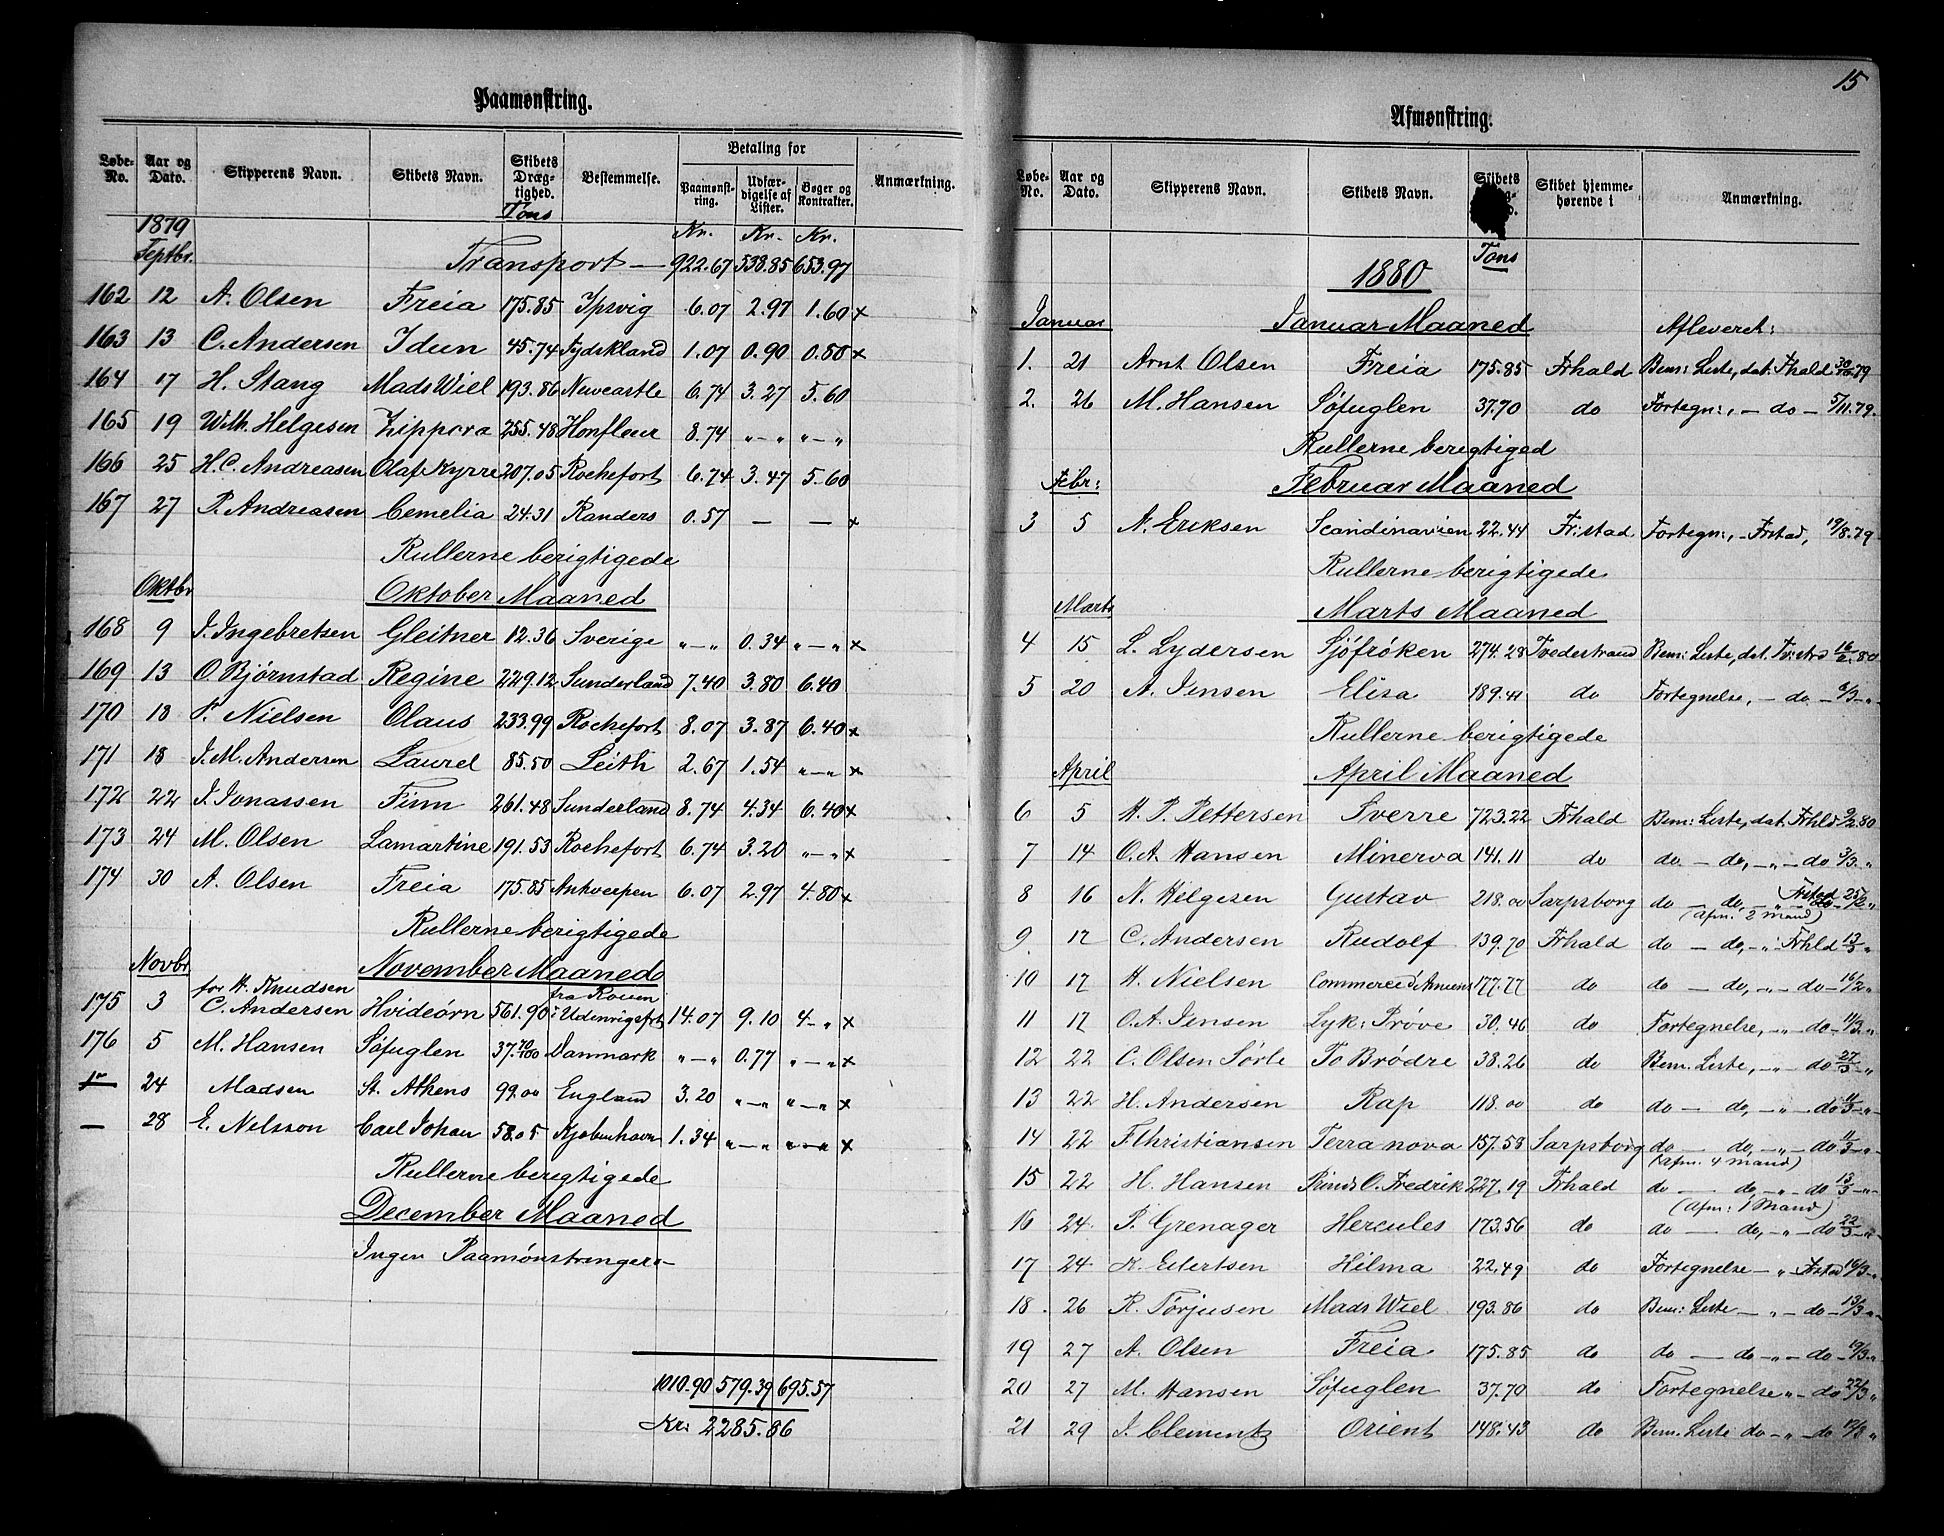 Paamønstring.
Løbe-No. Aar og Dato. Skipperens Navn. Skibets Navn. Skibets Dræg-tighed. Bestemmelse. Betaling for Paamønst-ring. Udfær-digelse af Lister. Bøger og Kontrakter. Anmærkning.
1879 Tons Kr. Kr. Kr.
Septbr. Transport — 922.67 538.85 653.97
162 12 A. Olsen Freia 175.85 Ipsvig 6.07 2.97 1.60 x
163 13 C. Andersen Idun 45.74 Tydskland 1.07 0.90 0.80 x
164 17 H. Stang Mads Wiel 193.86 Newcastle 6.74 3.27 5.60
165 19 Wilh. Helgesen Zippora 255.48 Honfleur 8.74 „—„ „—„
166 25 H. C. Andreasen Olaf Kyrre 207.05 Rochefort 6.74 3.47 5.60
167 27 P. Andreasen Cemelia 24.31 Randers 0.57 — — x
Rullerne berigtigede
Oktbr Oktober Maaned
168 9 J. Ingebretsen Gleitner 12.36 Sverige „—„ 0.34 „—„ x
169 13 O. Bjørnstad Regine 229.12 Sunderland 7.40 3.80 6.40
170 18 F. Nielsen Olaus 233.99 Rochefort 8.07 3.87 6.40 x
171 18 J. M. Andersen Laurel 85.50 Leith 2.67 1.54 „—„ x
172 22 J. Jonassen Finn 261.48 Sunderland 8.74 4.34 6.40 x
173 24 M. Olsen Lamartine 191.53 Rochefort 6.74 3.20 „—„ x
174 30 A. Olsen Freia 175.85 Antverpen 6.07 2.97 4.80 x
Rullerne berigtigede
Novbr November Maaned
for H. Knudsen fra Rouen
175 3 C. Andersen Hvideørn 561.90 i Udenrigsfrt 14.07 9.10 4-„ x
176 5 M. Hansen Søfuglen 37.70/100 Danmark „—„ 0.77 „—„ x
24 Madsen St. Athens 99.00 England 3.20 „—„ „—„ x
— 28 E. Nelsson Carl Johan 58.05 Kjøbenhavn 1.34 „—„ „—„ x
Rullerne berigtigede
December Maaned
Ingen Paamønstringer.-
1010.90 579.39 695.57
Kr: 2285.86
15
Afmønstring.
Løbe-No. Aar og Dato. Skipperens Navn. Skibets Navn. Skibets Skibet hjemme-hørende i Anmærkning.
Tons
1880
Januar Januar Maaned Afleveret:
1. 21 Arnt Olsen Freia 175.85 Frhald Bem: Liste, dat. Fhald 30/10 79
2. 26 M. Hansen Søfuglen 37.70 do Fortegn:, — do — 5/11.79.
Rullerne berigtiged
Febr: Februar Maaned
3 5 N. Eriksen Scandinavien 22.44 Fr:stad Fortegn:, — Frstad, 19/8.79
Rullerne berigtigede
Marts Marts Maaned
4 15 L. Lydersen Sjøfrøken 274.28 Tvedestrand Bem: Liste, dat. Tv:strd 16/2.80
5 20 A. Jensen Elisa 189.41 do Fortegnelse, — do — 8/3 -„-
Rullerne berigtigede
April April Maaned
6 5 H. P. Pettersen Sverre 723.22 Frhald Bem: Liste, dat. Frhld 9/2.80
7 14 O. A. Hansen Minerva 141.11 do do — do, -„- do 3/3.„
8 16 N. Helgesen Gustav 218.00 Sarpsborg do — do, -„- Frstad 25/2 „
(Afm. 2 Mand)
9. 17 C. Andersen Rudolf 139.70 Frhald do — do, -„ Frhld 13/3 „
10 17 H. Nielsen Commerce d'Amiens 177.77 do do — do, -„- do 16/2 „
11 17 O. A. Jensen Lyk: Prøve 30.46 do Fortegnelse, -„- do 11/3 „
12 22 C. Olsen Sørle To Brødre 38.26 do Bem. Liste, -„- do 27/3 „
13 22 H. Andersen Rap 118.00 do do — do, -„- do 11/3 -„-
14 22 F Christiansen Terra nova 157.58 Sarpsborg do — do, -„- do 11/3 -„-
(Afm. 4 Mand)
15 22 H. Hansen Prinds O. Fredrik 227.19 Frhald do — do, -„- do 13/3 -„-
(Afm: 1 Mand)
16 24. P. Grenager Hercules 173.56 do do — do, -„- do 22/3 -„-
17 24 K. Eilertsen Hilma 22.49 do Fortegnelse — „ Frstad 16/3 -„
18. 26 R. Torjusen Mads Wiel 193.86 do Bem: Liste — „ — do — 13/3 -„-
19 27 A. Olsen Freia 175.85 do do — do -„- do 19/3 -„
20 27 M. Hansen Søfuglen 37.70 do Fortegnelse „ — do 22/3 „
21 29 J. Clementz Orient 148.43 do Bem. Liste do — „ — do 12/3 „